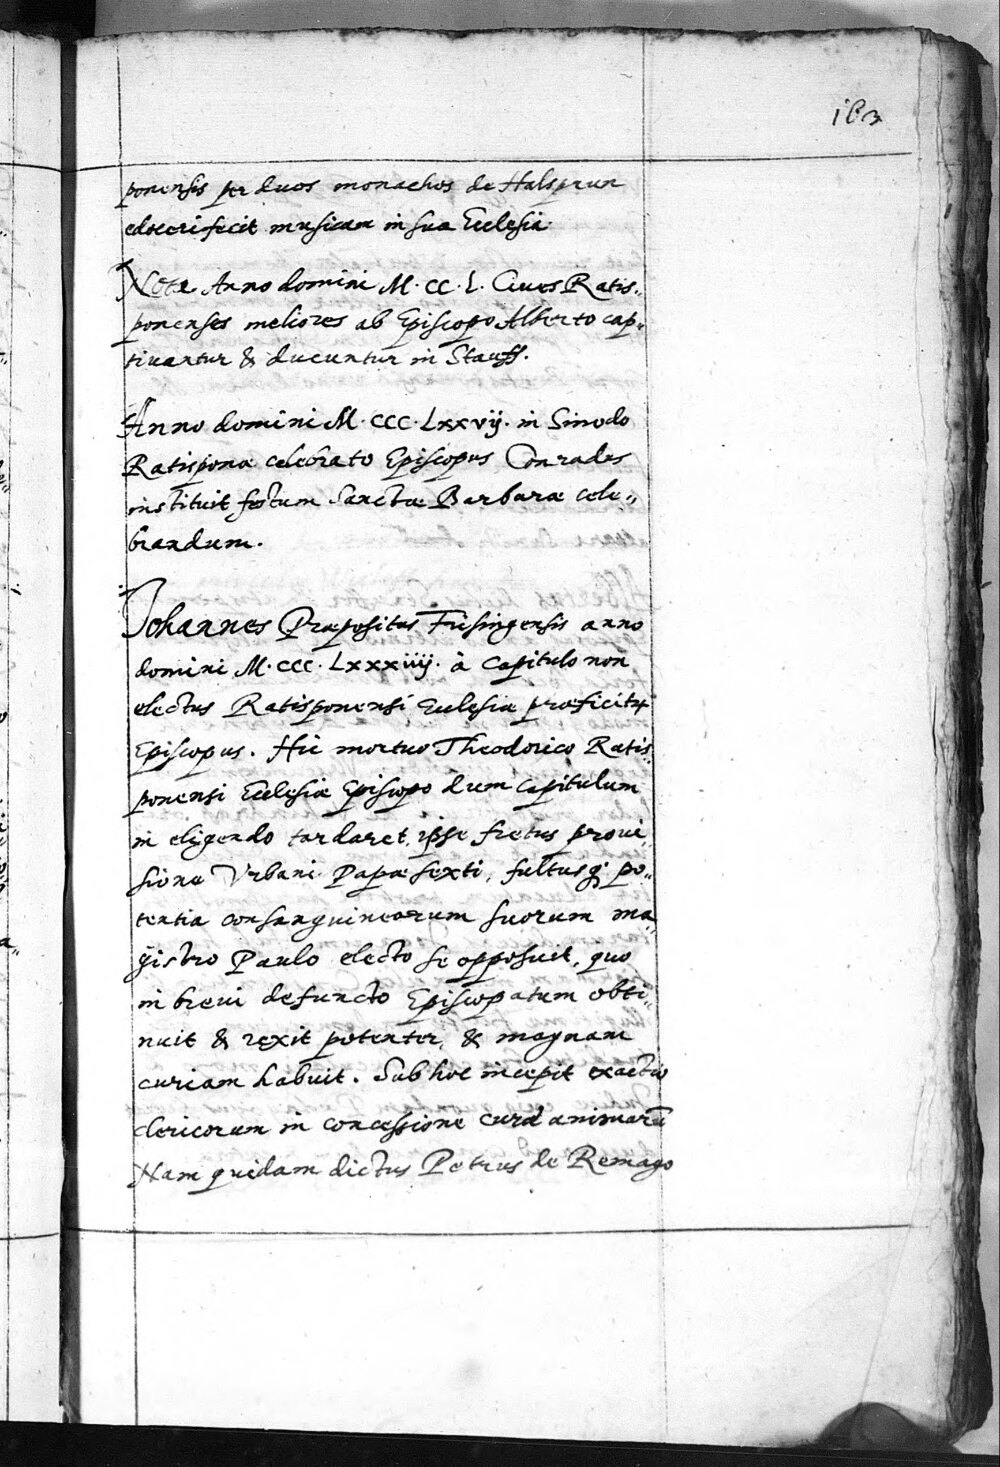 163
ponensis per duos monachos de Halsprun
edoceri fecit musicam in sua Ecclesia.
Nota Anno domini M. CC. L. Ciues Ratis„
ponenses meliores ab Episcopo Alberto cap„
tiuantur & ducuntur in Stauff.
Anno domini M. CCC. Lxxvij. in Sinodo
Ratisponæ celebrato Episcopus Conradus
instituit festum Sanctæ Barbaræ cele„
brandum.
Johannes Præpositus Frisingensis anno
domini M. CCC. Lxxxiiij. à Capitulo non
electus Ratisponensi Ecclesiæ præficitur
Episcopus. Hic mortuo Theodorico Ratis„
ponensi Ecclesiæ Episcopo dum Capitulum
in eligendo tardaret, ipse fretus proui„
sione Vrbani Papæ sexti, fultusq; po„
tentia consanguineorum suorum ma„
gistro Paulo electo se opposuit, quo
in breui defuncto Episcopatum obti„
nuit & rexit potenter, & magnam
curiam habuit. Sub hoc incepit exactio
clericorum in concessione curæ animarū
Nam quidam dictus Petrus de Remago